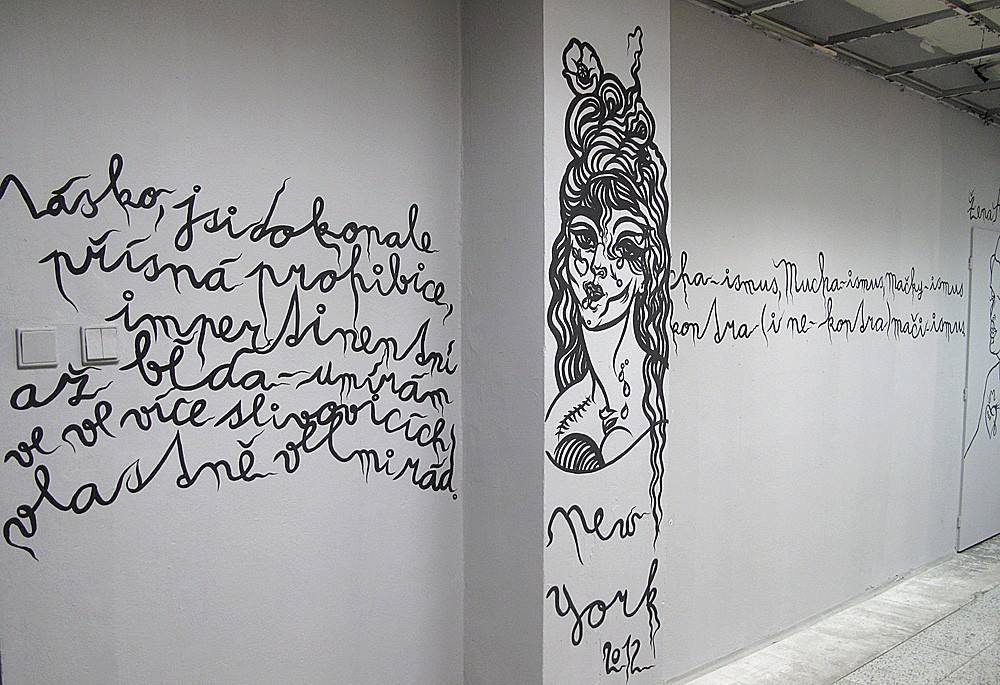 Lásko, jsi dokonale
přísná prohibice,
impertinentní
až běda-umírám
ve vě více slivovicích
vlastně velmi rád.
new
york
2012
cha-ismus, Mucha-ismus, Mačky-ismus
kontra (i ne-kontra) mači-ismus,
Žena